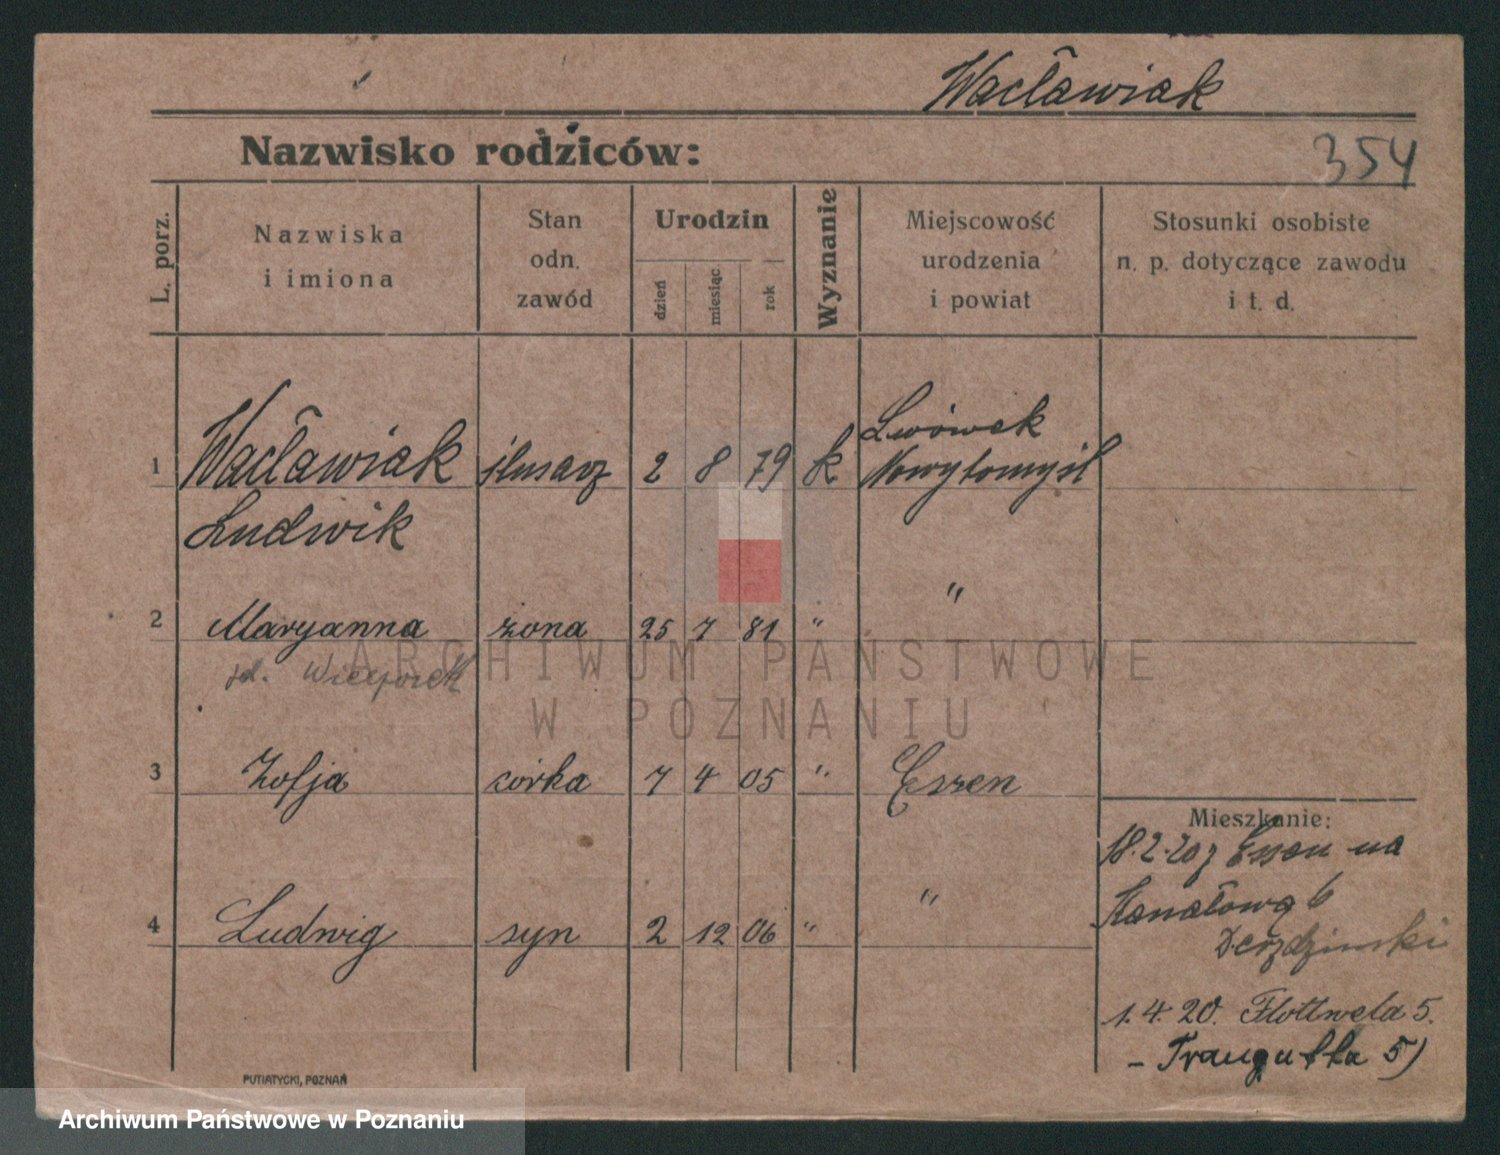 Wacławiak
Nazwisko rodziców:
354
L. porz.
Nazwiska
i imiona
Stan
odn.
zawód
Urodzin
dzień
miesiąc
rok
Wyznanie
Miejscowość
urodzenia
i powiat
Stosunki osobiste
n. p. dotyczące zawodu
i t. d.
1 Wacławiak ślusarz 2 8 79 k Lwówek
Nowytomyśl
Ludwik
2 Maryanna żona 25 7 81 " "
3 Zofja córka 7 4 05 " Essen
4 Ludwig syn 2 12 06 " "
Mieszkanie:
18.2.20 z Essen na
Kanałową 6
1.4.20. Flottwela 5.
- Traugutta 5)
PUTIATYCKI, POZNAŃ
ARCHIWUM PAŃSTWOWE
W POZNANIU
Archiwum Państwowe w Poznaniu